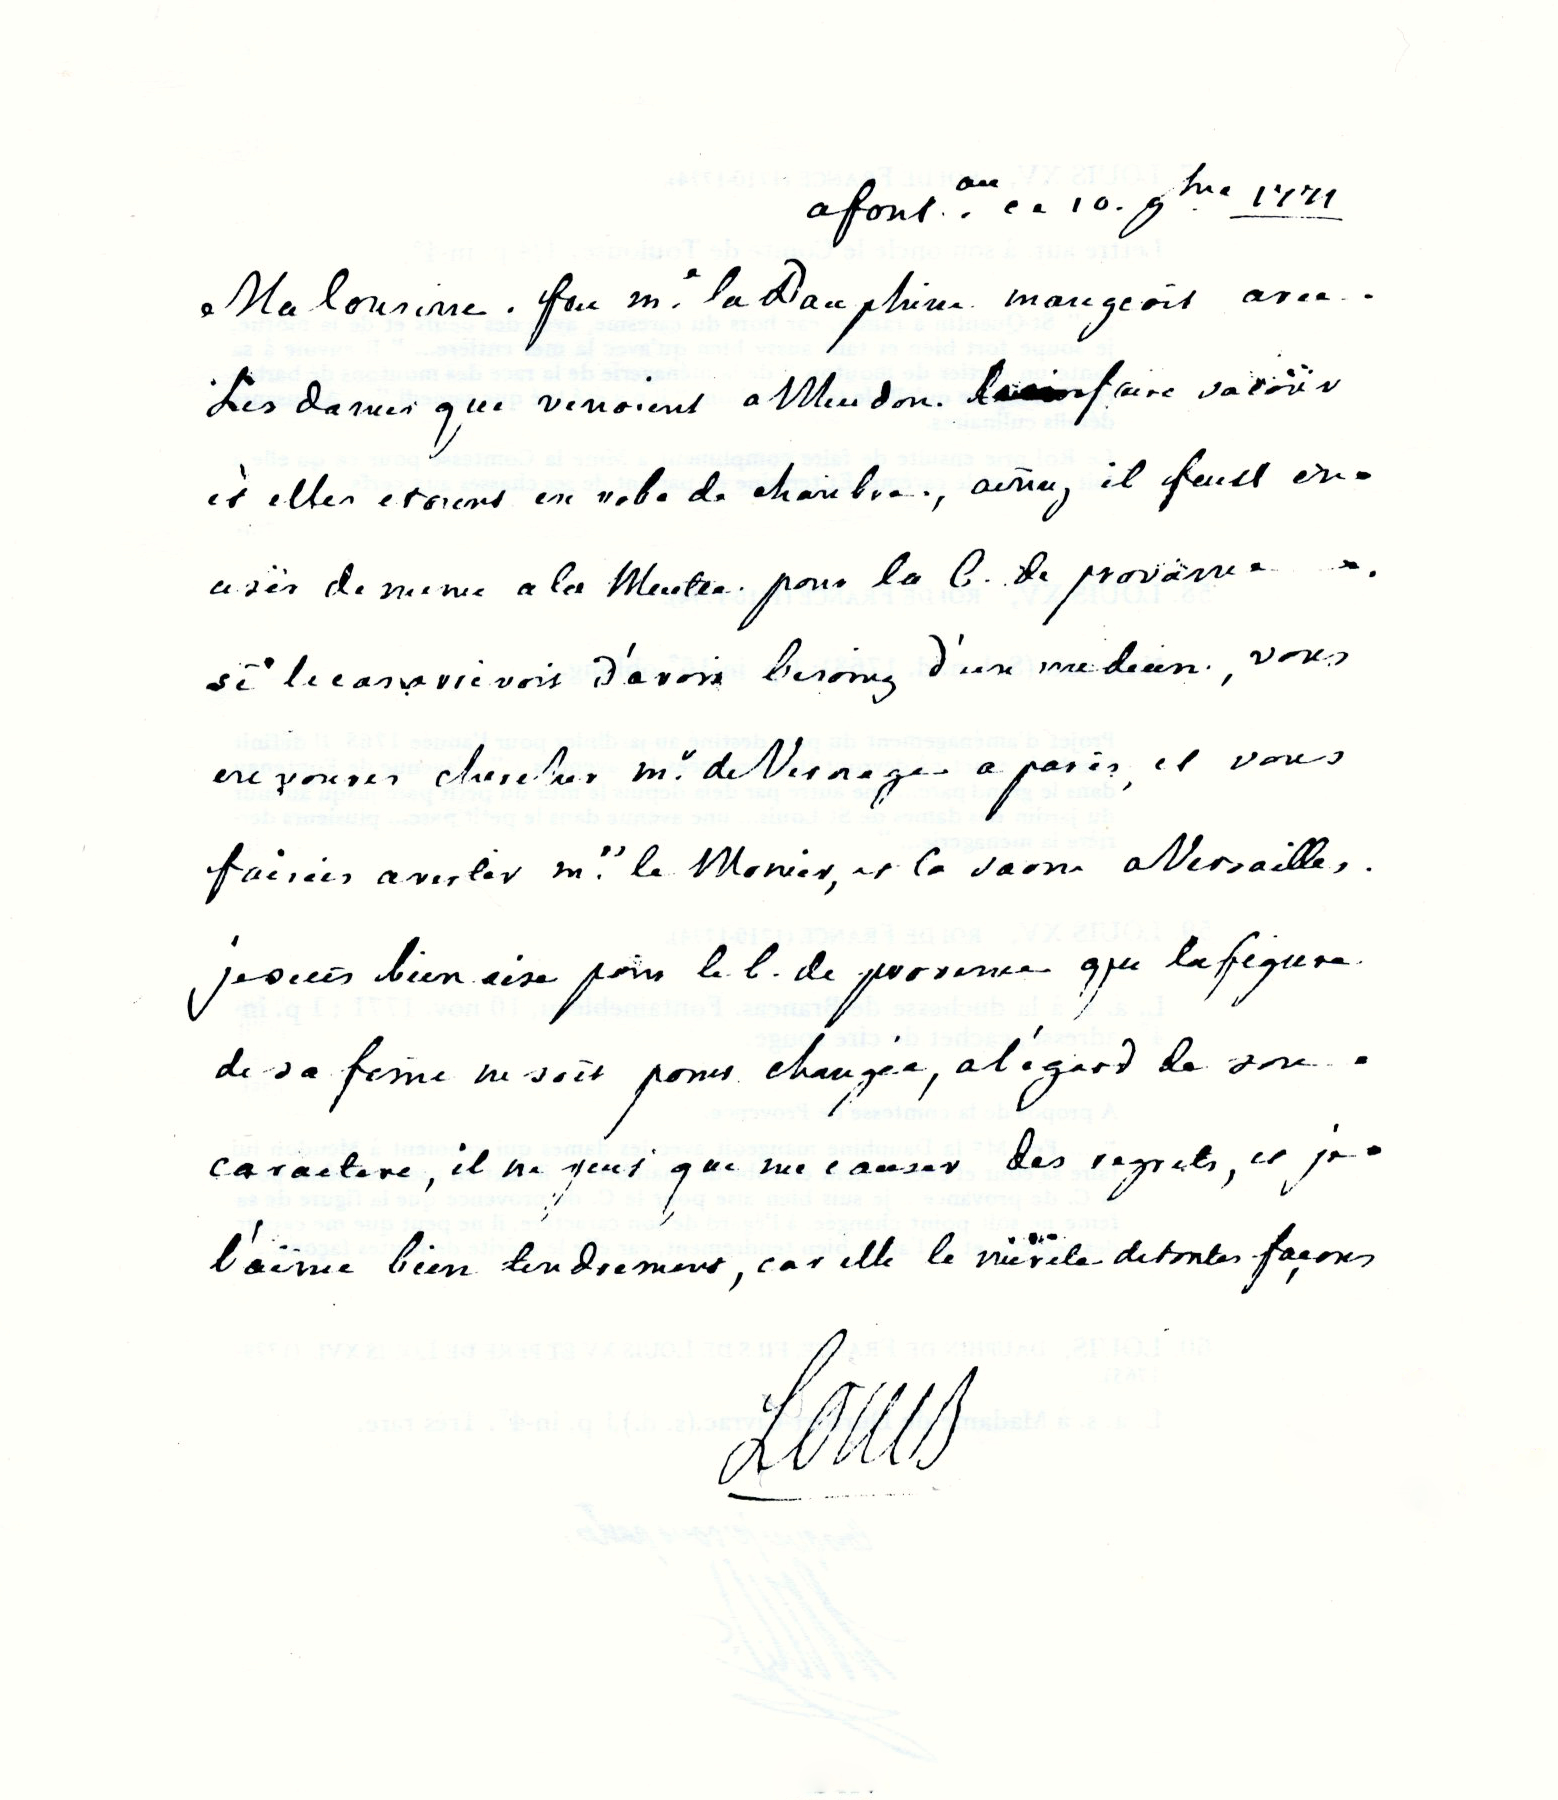 a font.au ce 10. 9bre 1771
Ma Cousine. feu me la Dauphine mangeoit avec
Les dames qui venoient a Meudon. faire sa cour
et elles etoient en robe de chambre, ainsy il faust en
user de meme a la Meutte pour la C. de provance
si le cas arrivoit d'avoir besoing d'un medecin, vous
envoyeres chercher mr. de Vernage a paris, et vous
faisies avertir mrs le Monier, et la saone a Versailles.
je suis bien aise pour le C. de provence que la figure
de sa feme ne soit point changée, a l'egard de son
caractere, il ne peut que me causer des regrets, et je
l'aime bien tendrement, car elle le merite de toutes façons
Louis